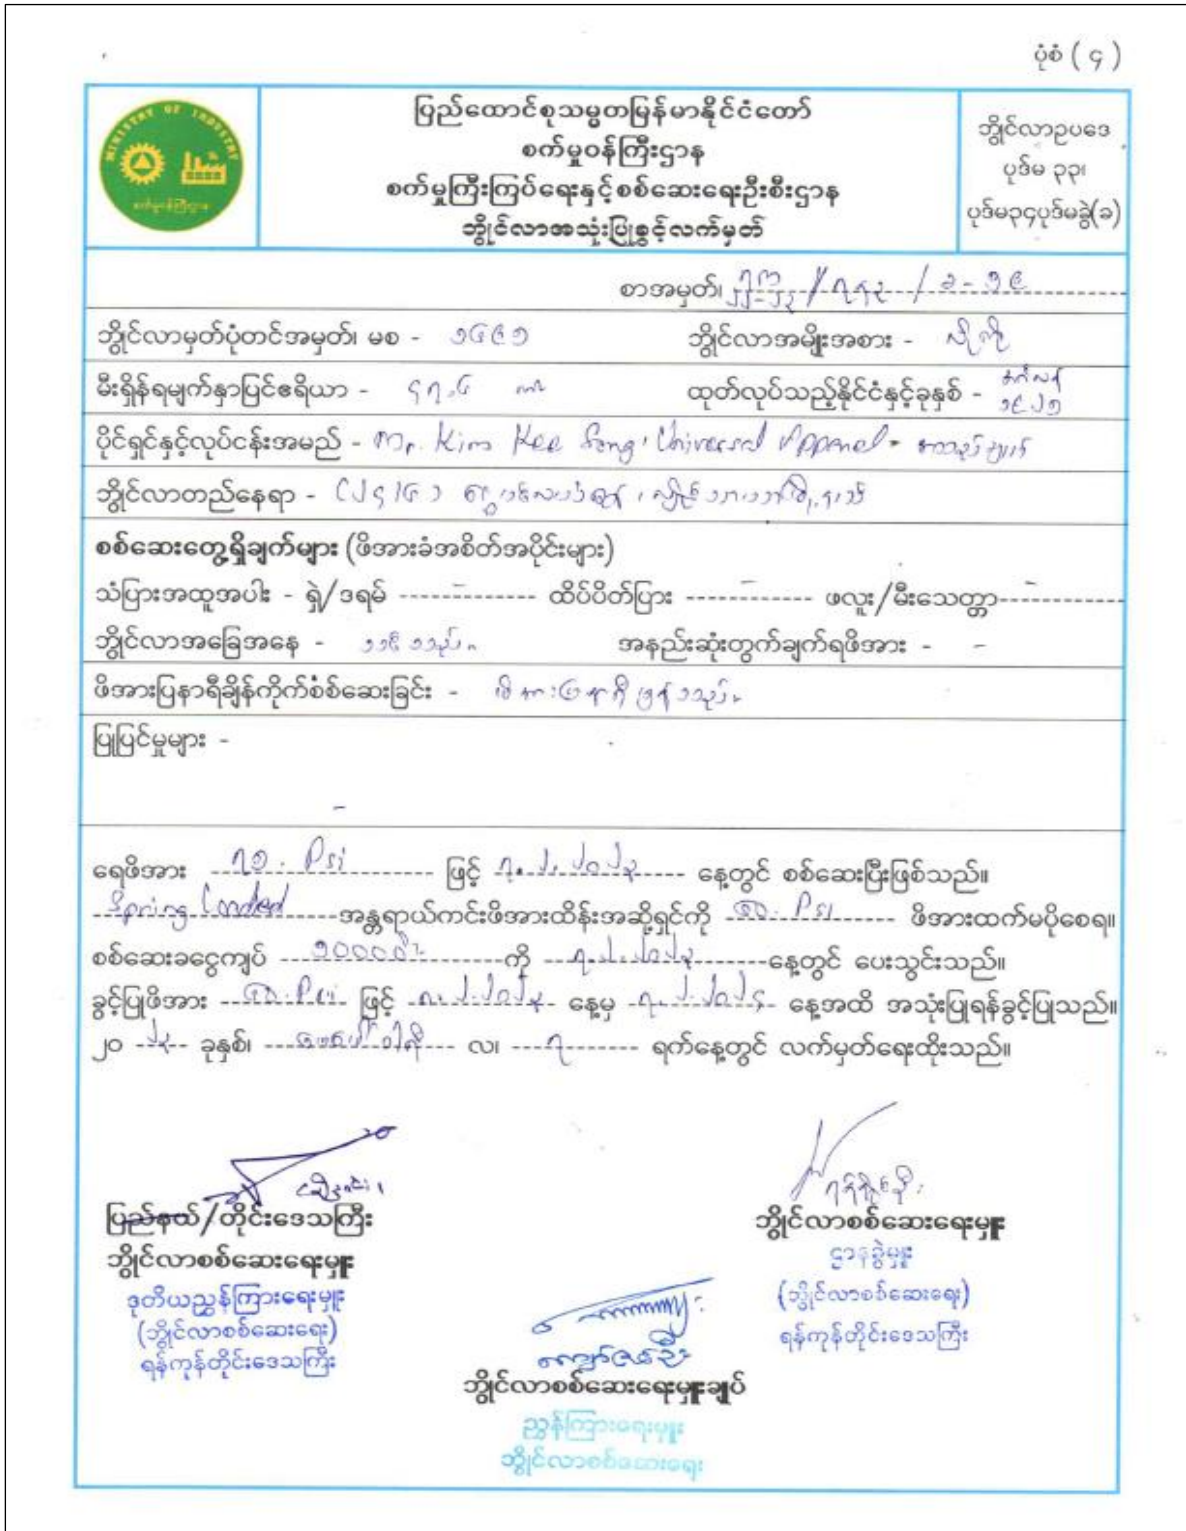 ပုံစံ ( ၄ )
MINISTRY OF INDUSTRY
စက်မှုဝန်ကြီးဌာန
ပြည်ထောင်စုသမ္မတမြန်မာနိုင်ငံတော်
စက်မှုဝန်ကြီးဌာန
စက်မှုကြီးကြပ်ရေးနှင့်စစ်ဆေးရေးဦးစီးဌာန
ဘွိုင်လာအသုံးပြုခွင့်လက်မှတ်
ဘွိုင်လာဥပဒေ
ပုဒ်မ ၃၃၊
ပုဒ်မ၃၄ပုဒ်မခွဲ(ခ)
စာအမှတ်၊
ဘွိုင်လာမှတ်ပုံတင်အမှတ်၊ မစ - ၁၆၉၁ ဘွိုင်လာအမျိုးအစား -
မီးရှိန်ရမျက်နှာပြင်ဧရိယာ - ၄၇.၆ ထုတ်လုပ်သည့်နိုင်ငံနှင့်ခုနှစ် -
ပိုင်ရှင်နှင့်လုပ်ငန်းအမည် - Mr. Kim Kee Universal Apparel
ဘွိုင်လာတည်နေရာ -
စစ်ဆေးတွေ့ရှိချက်များ (ဖိအားခံအစိတ်အပိုင်းများ)
သံပြားအထူအပါး - ရှဲ/ဒရမ် - ထိပ်ပိတ်ပြား - ဖလူး/မီးသေတ္တာ -
ဘွိုင်လာအခြေအနေ - အနည်းဆုံးတွက်ချက်ရဖိအား - -
ဖိအားပြနာရီချိန်ကိုက်စံစစ်ဆေးခြင်း - ဖိအားပြနာရီမှန်သည်။
ပြုပြင်မှုများ -
-
ရေဖိအား ၇၅. Psi ဖြင့် ၇.၂.၂၀၂၃ နေ့တွင် စစ်ဆေးပြီးဖြစ်သည်။
Spring Loaded အန္တရာယ်ကင်းဖိအားထိန်းအဆို့ရှင်ကို ၅၀. Psi ဖိအားထက်မပိုစေရ။
စစ်ဆေးခငွေကျပ် ကို ၇.၂.၂၀၂၃ နေ့တွင် ပေးသွင်းသည်။
ခွင့်ပြုဖိအား ၅၀. Psi ဖြင့် ၈.၂.၂၀၂၃ နေ့မှ ၇.၂.၂၀၂၄ နေ့အထိ အသုံးပြုရန်ခွင့်ပြုသည်။
၂၀ ၂၃ ခုနှစ်၊ ဖေဖော်ဝါရီ လ၊ ၇ ရက်နေ့တွင် လက်မှတ်ရေးထိုးသည်။
ပြည်နယ်/တိုင်းဒေသကြီး
ဘွိုင်လာစစ်ဆေးရေးမှူး
ဒုတိယညွှန်ကြားရေးမှူး
(ဘွိုင်လာစစ်ဆေးရေး)
ရန်ကုန်တိုင်းဒေသကြီး
ဘွိုင်လာစစ်ဆေးရေးမှူး
ဌာနခွဲမှူး
(ဘွိုင်လာစစ်ဆေးရေး)
ရန်ကုန်တိုင်းဒေသကြီး
ဘွိုင်လာစစ်ဆေးရေးမှူးချုပ်
ညွှန်ကြားရေးမှူး
ဘွိုင်လာစစ်ဆေးရေး